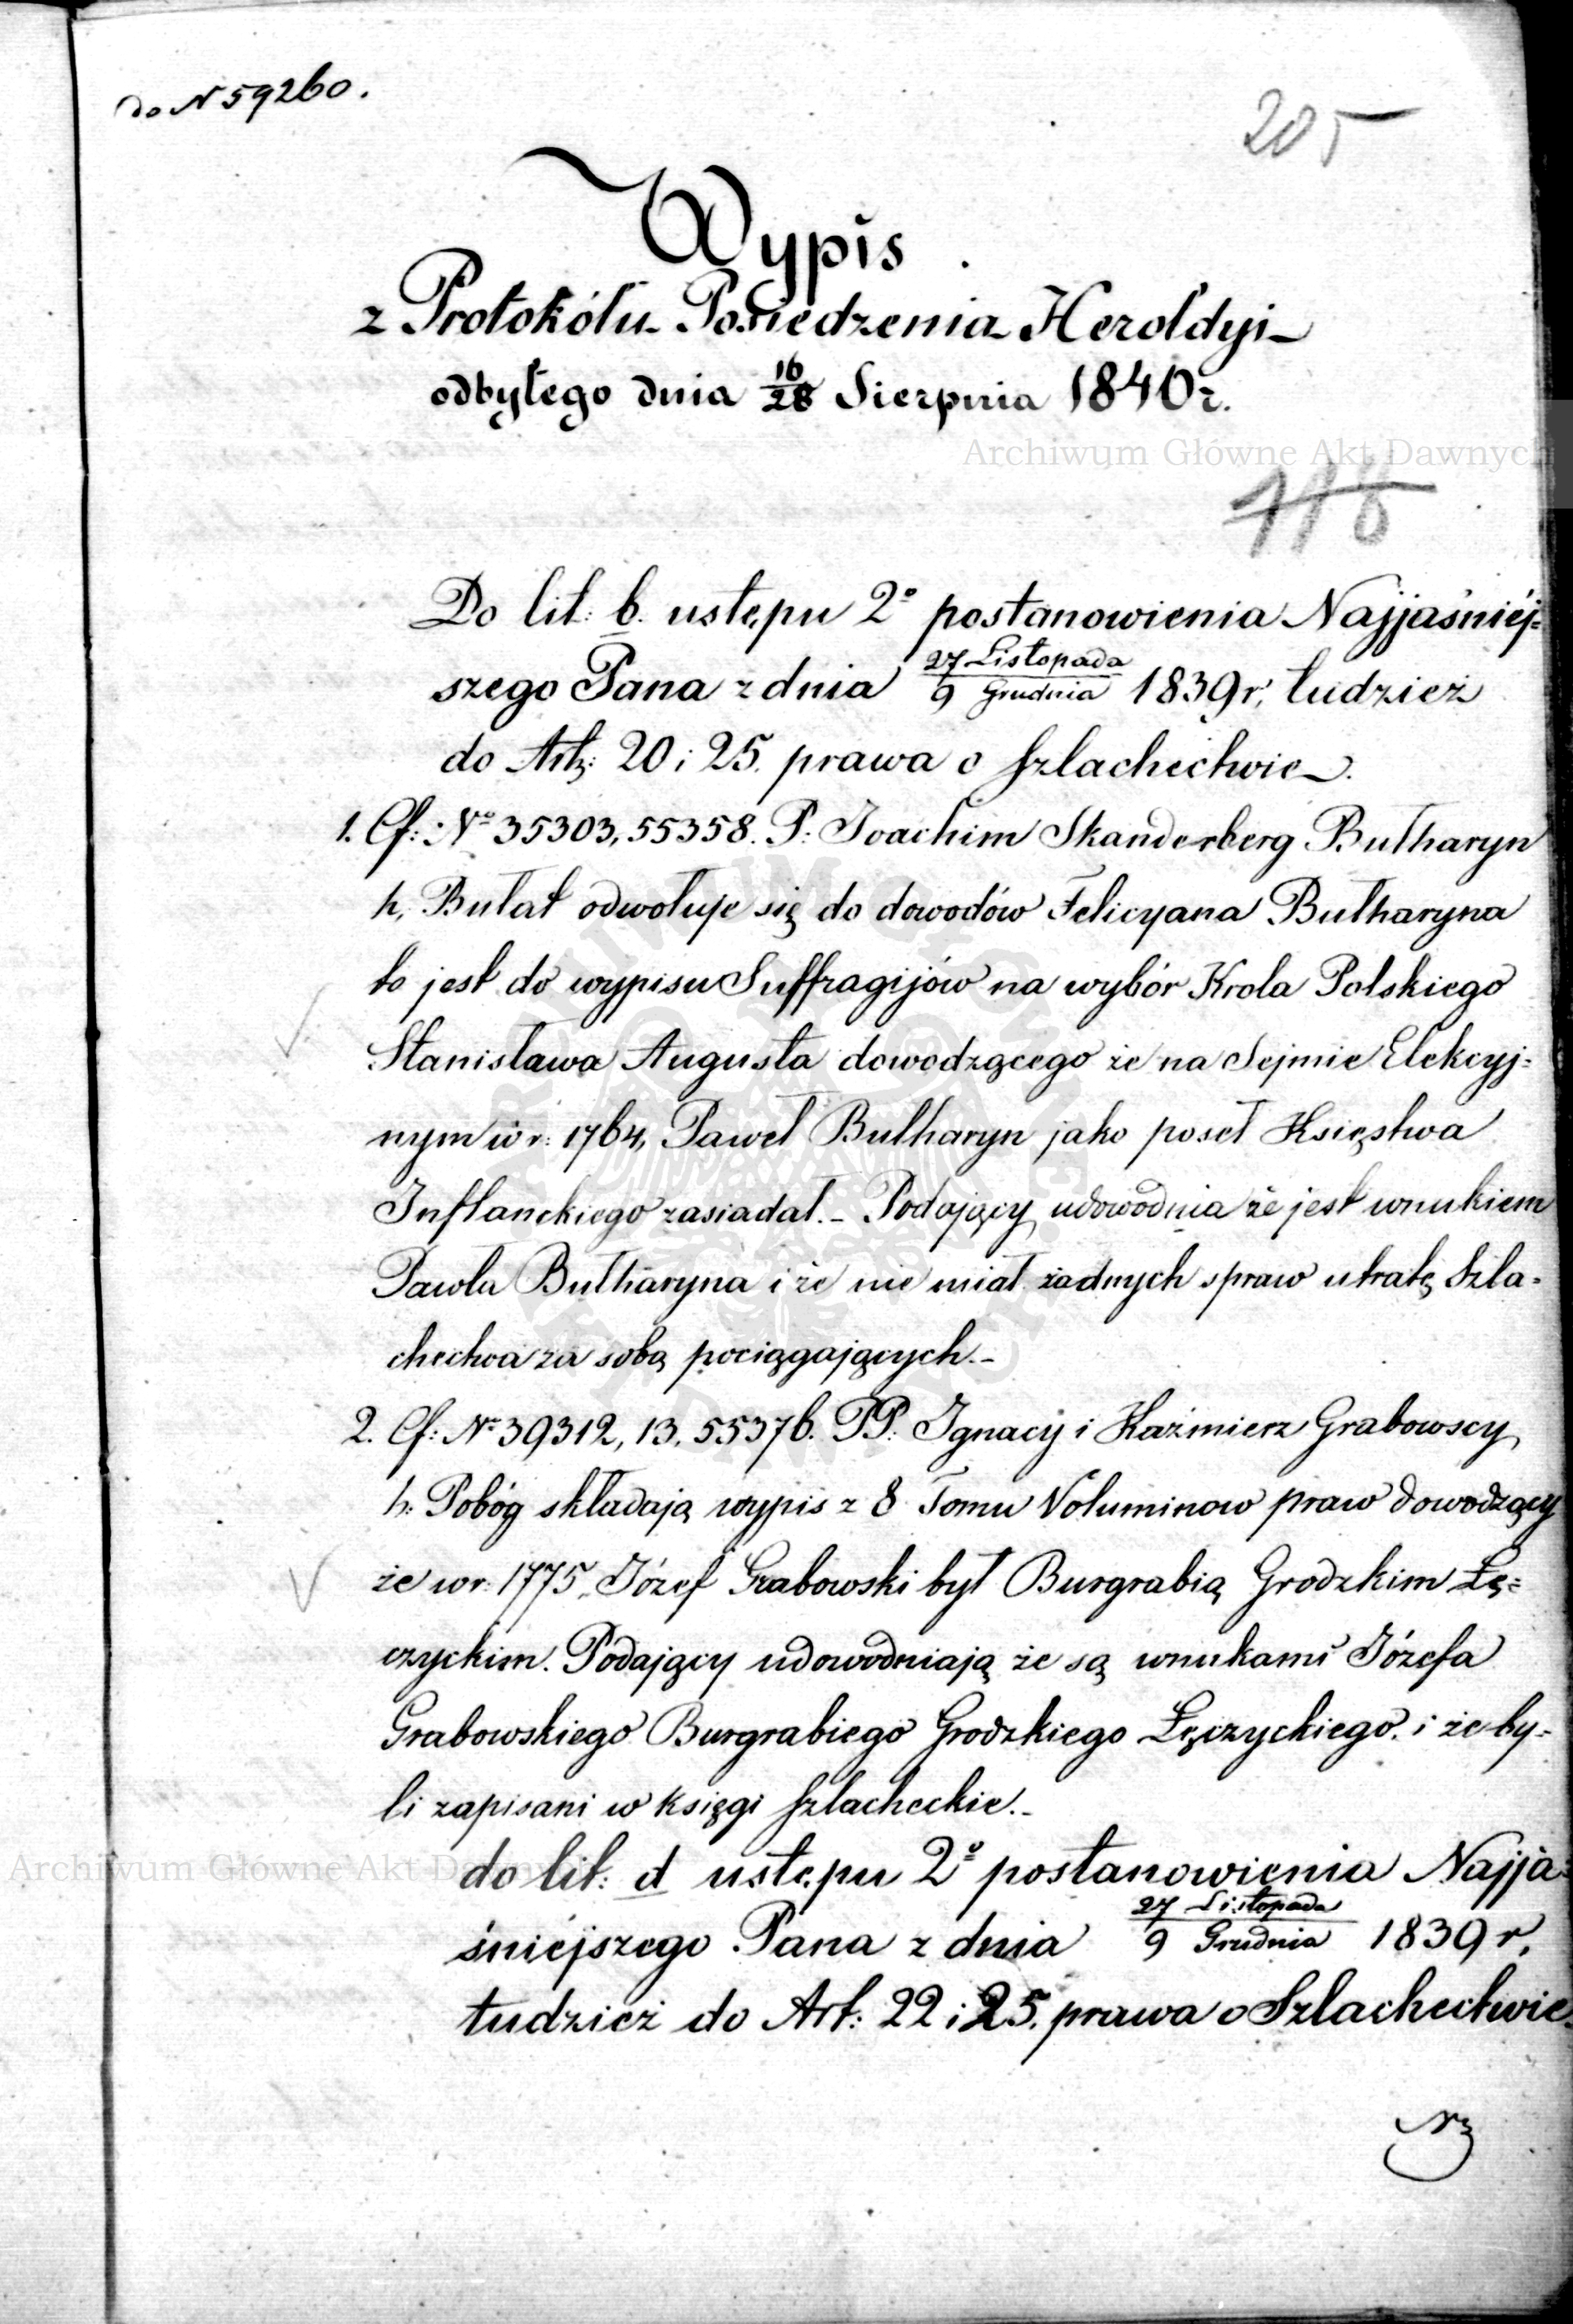 do N 59260.
205
Wypis
z Protokółu Posiedzenia Heroldyi
odbytego dnia 16/28 Sierpnia 1840 r.
Archiwum Główne Akt Dawnych
118
Do lit: b. ustępu 2º postanowienia Najjaśniéj=
szego Pana z dnia 27 Listopada/9 Grudnia 1839 r, tudzież
do Art: 20 i 25. prawa o Szlachectwie.
1. Cf: Nº 35303, 55358. P: Joachim Skanderberg Bułharyn
h. Bułat odwołuje się do dowodów Felicyana Bułharyna
to jest do wypisu Suffragijów na wybór Krola Polskiego
Stanisława Augusta dowodzącego że na Sejmie Elekcyj=
nym w r: 1764, Paweł Bułharyn jako poseł Księstwa
Inflanckiego zasiadał.- Podający udowodnia że jest wnukiem
Pawła Bułharyna i że nie miał żadnych spraw utratę Szla=
chectwa za sobą pociągających.-
2. Cf: Nº 39312, 13, 55376. PP: Ignacy i Kaźmierz Grabowscy
h: Pobóg składają wypis z 8 Tomu Voluminow praw dowodzący
że w r: 1775, Józef Grabowski był Burgrabią Grodzkim Łę=
czyckim. Podający udowodniają że są wnukami Józefa
Grabowskiego Burgrabiego Grodzkiego Łęczyckiego. i że by=
li zapisani w księgi Szlacheckie.-
Archiwum Główne Akt Dawnych
do lit: d ustępu 2º postanowienia Najja=
śniéjszego Pana z dnia 27 Listopada/9 Grudnia 1839 r,
tudzież do Art: 22 i 25. prawa o Szlachectwie.